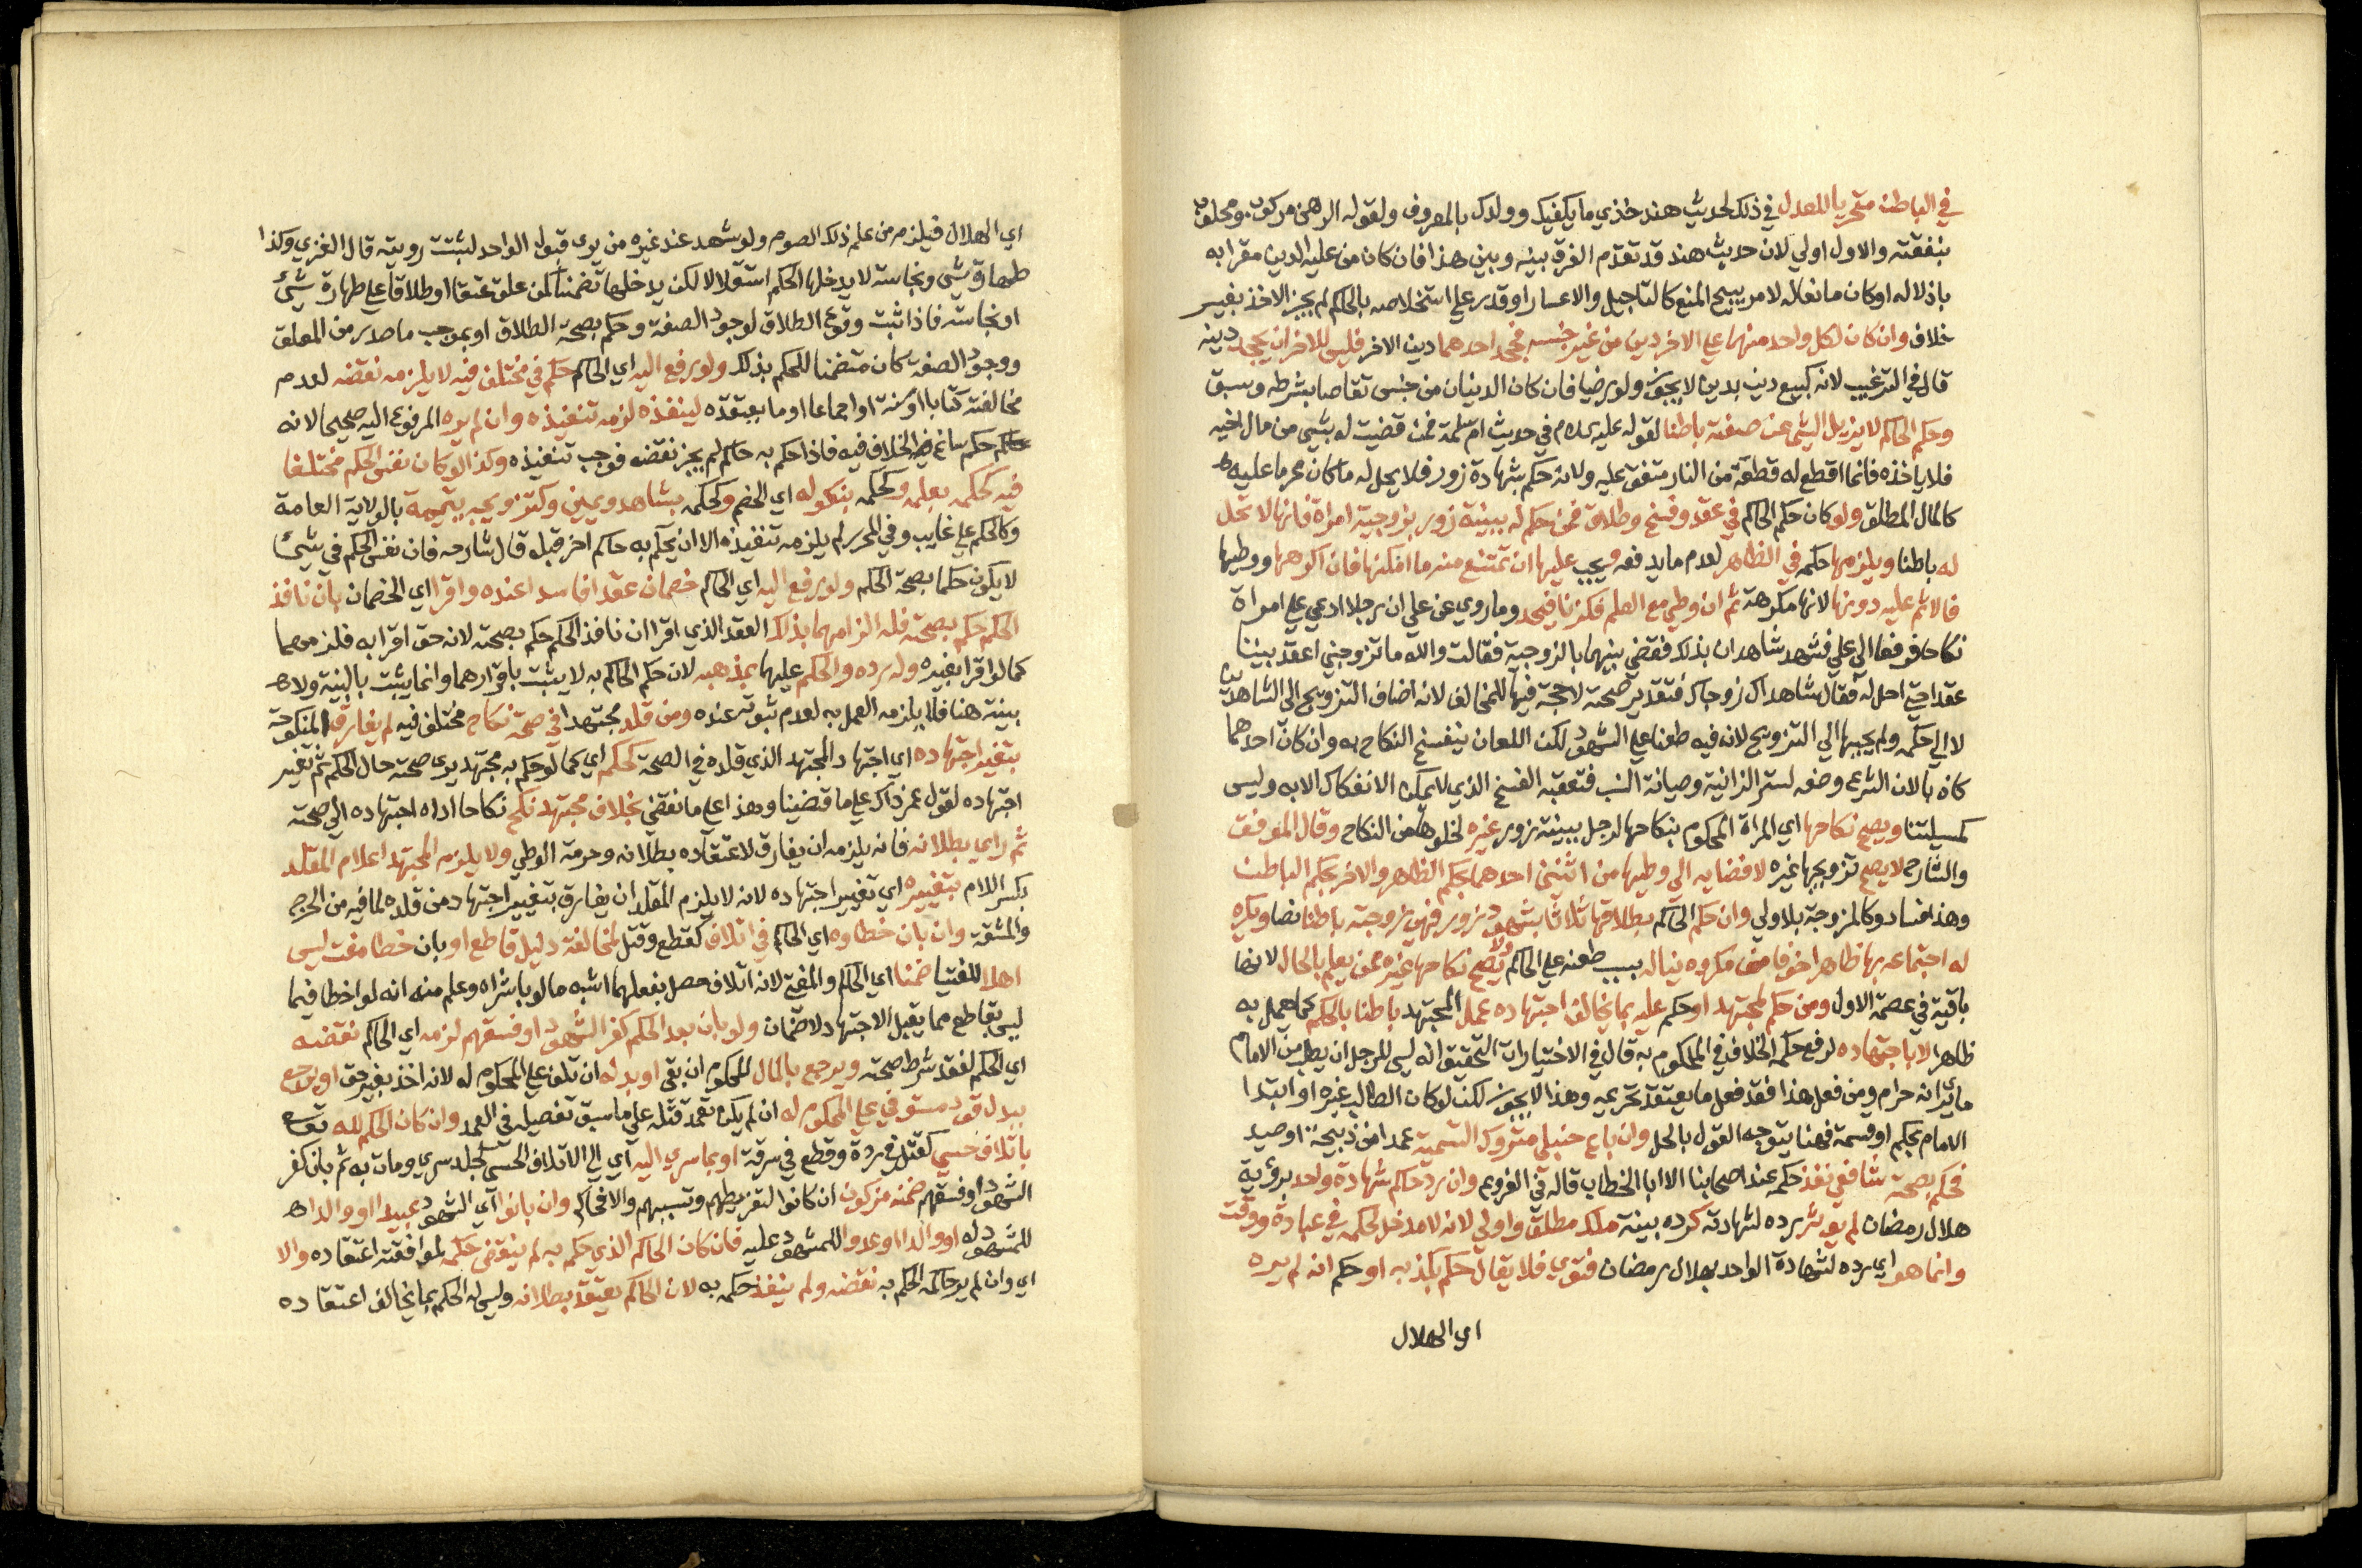 في الباطن متحريا للعدل في ذلك لحديث هند خذي ما يكفيك وولدك بالمعروف ولقوله الرهن مركوب ومحلوب
بنفقته والاول اولي لان حديث هند قد تقدم الفرق بينه وبين هذا فان كان من عليه الدين مقرا به
باذلا له او كان مانعا له لامر يبيح المنع كالتاجيل والاعسار او قدر علي استخلاصه بالحاكم لم يجز الاخذ بغير
خلاف وان كان لكل واحد منهما علي الاخر دين من غير جنسه فجحد احدهما دين الاخر فليس للاخر ان يجحد دينه
قال في الترغيب لانه كبيع دين بدين لا يجوز ولو رضيا فان كان الدينان من جنس تقاصا بشرطه وسبق
وحكم الحاكم لا يزيل الشي عن صفته باطنا لقوله عليه السلام في حديث ام سلمة فمن قضيت له بشي من مال اخيه
فلا ياخذه فانما اقطع له قطعة من النار متفق عليه ولانه حكم بشهادة زور فلا يحل له ما كان محرما عليه
كالمال المطلق ولو كان حكم الحاكم في عقد وفسخ وطلاق فمن حكم له ببينة زور بزوجية امراة فانها لا تحل
له باطنا ويلزمها حكمه في الظاهر لعدم ما يدفعه ويجب عليها ان تمتنع منه ما امكنها فان اكرهها ووطيها
فالاثم عليه دونها لانها مكرهة ثم ان وطي مع العلم فكزنا فيحد وما روي عن علي ان رجلا ادعي علي امراة
نكاحا فرفعا الي علي فشهد شاهدان بذلك فقضي بينهما بالزوجية فقالت والله ما تزوجني اعقد بيننا
عقدا حتي احل له فقال شاهداك زوجاك فتقدير صحته لا حجة فيها للمخالف لانه اضاف التزويج الي الشاهدين
لا الي حكمه ولم يجبها الي التزويج لان فيه طعنا علي الشهود لكن اللعان ينفسخ النكاح به وان كان احدهما
كاذبا لان الشرع وضعه لستر الزانية وصيانة النسب فتعقبه الفسخ الذي لا يمكن الانفكاك الا به وليس
كمسيلتنا ويصح نكاحها اي المراة المحكوم بنكاحها لرجل ببينة زور غيره لخلوها من النكاح وقال الموفق
والشارح لا يصح تزويجها غيره لافضايه الي وطيها من اثنين احدهما بحكم الظاهر والاخر بحكم الباطن
وهذا فساد وكالمزوجة بلا ولي وان حكم الحاكم بطلاقها ثلاثا بشهود زور فهي زوجته باطنا نصا ويكره
له اجتماعه بها ظاهرا خوفا من مكروه يناله بسبب طعنه علي الحاكم ولا يصح نكاحها غيره ممن يعلم بالحال لانها
باقية في عصمة الاول ومن حكم لمجتهد او حكم عليه بما يخالف اجتهاده عمل المجتهد باطنا بالحكم كما عمل به
ظاهرا لا باجتهاده لرفع حكمه الخلاف في المحكوم به قال في الاختيارات التحقيق انه ليس للرجل ان يطلب من الامام
ما يري انه حرام ومن فعل هذا فقد فعل ما يعتقد تحريمه وهذا لا يجوز لكن لو كان الطالب غيره او ابتدا
الامام بحكم او قسمة فهنا يتوجه القول بالحل وان باع حنبلي متروك التسمية عمدا من ذبيحة او صيد
فحكم بصحته شافعي نفذ حكمه عند اصحابنا الا ابا الخطاب قاله في الفروع وان رد حاكم شهادة واحد برؤية
هلال رمضان لم يوثر رده لشهادته كرده بينة ملك مطلق واولي لانه لا مدخل لحكمه في عبادة ووقت
وانما هو اي رده لشهادة الواحد بهلال رمضان فتوي فلا يقال حكم بكذبه او حكم انه لم يره
اي الهلال
اي الهلال فيلزمه من علم ذلك الصوم ولو شهد عند غيره من يري قبول الواحد لثبت رويته قال الغزي وكذا
طهارة شي ونجاسته لا يدخلها الحكم استقلالا لكن يدخلها تضمنا كمن علق عتقا او طلاقا علي طهارة شي
او نجاسته فاذا ثبت وقوع الطلاق لوجود الصفة وحكم بصحة الطلاق او بموجب ما صدر من المعلق
ووجود الصفة كان متضمنا للحكم بذلك ولو رفع اليه اي الحاكم حكم في مختلف فيه لا يلزمه نقضه لعدم
مخالفته كتابا او سنة او اجماعا او ما يعتقده لينفذه لزمه تنفيذه وان لم يره المرفوع اليه صحيحا لانه
حكم ساغ الخلاف فيه فاذا حكم به حاكم لم يجز نقضه فوجب تنفيذه وكذا لو كان نفس الحكم مختلفا
فيه كحكمه بعلمه وكحكمه بنكوله اي الخصم وكحكمه بشاهد ويمين وكتزويجه يتيمة بالولاية العامة
وكالحكم علي غايب وفي المحرر لم يلزمه تنفيذه الا ان يحكم به حاكم اخر قبله قال شارحه فان نفس الحكم في شي
لا يكون حكما بصحة الحكم ولو رفع اليه اي الحاكم خصمان عقدا فاسدا عنده واقرا اي الخصمان بان نافذ
الحكم حكم بصحته فله الزامهما بذلك العقد الذي اقرا ان نافذ الحكم حكم بصحته لانه حق اقرا به فلزمهما
كما لو اقرا بغيره وله رده والحكم عليهما بمذهبه لان حكم الحاكم به لا يثبت باقرارهما وانما يثبت بالبينة ولا
بينة هنا فلا يلزمه العمل به لعدم ثبوته عنده ومن قلد مجتهدا في صحة نكاح مختلف فيه لم يفارق المنكوحة
بتغير اجتهاده اي اجتهاد المجتهد الذي قلده في الصحة كحكم اي كما لو حكم به مجتهد يري صحته حال الحكم ثم تغير
اجتهاده لقول عمر ذاك علي ما قضينا وهذا علي ما نقضي بخلاف مجتهد نكح نكاحا اداه اجتهاده الي صحته
ثم راي بطلانه فانه يلزمه ان يفارق لاعتقاده بطلانه وحرمة الوطي ولا يلزم المجتهد اعلام المقلد
بكسر اللام بتغييره اي تغيير اجتهاده لانه لا يلزم المقلد ان يفارق بتغيير اجتهاد من قلده لما فيه من الحرج
والمشقة وان بان خطاوه اي الحاكم في اتلاف كقطع وقتل لمخالفة دليل قاطع او بان خطا مفت ليس
اهلا للفتيا ضمنا اي الحاكم والمفتي لانه اتلاف حصل بفعلهما اشبه ما لو باشراه وعلم منه انه لو اخطا فيما
ليس بقاطع مما يقبل الاجتهاد لا ضمان ولو بان بعد الحكم كفر الشهود او فسقهم لزمه اي الحاكم نقضه
اي الحكم لفقد شرط صحته ويرجع بالمال المحكوم ان بقي او بدله ان تلف علي المحكوم له لانه اخذ بغير حق او يرجع
ببدل قود مستوفي علي المحكوم له ان لم يكن تعمد قتله علي ما سبق تفصيله في العمد وان كان الحكم لله تعالي
باتلاف حسي كقتل في ردة وقطع في سرقة او بما سري اليه اي الي الاتلاف الحسي كجلد سري ومات به ثم بان كفر
الشهود او فسقهم ضمنه مزكون ان كانوا لتفريطهم وتسببهم والا فحاكم وان بانوا اي الشهود عبيدا او والدا
للمشهود له او والدا او عدوا للمشهود عليه فان كان الحاكم الذي حكم به لم ينقض حكمه لموافقته اعتقاده والا
اي وان لم ير حاكمه الحكم به نقضه ولم ينفذ حكمه به لان الحاكم يعتقد بطلانه وليس له الحكم بما يخالف اعتقاده